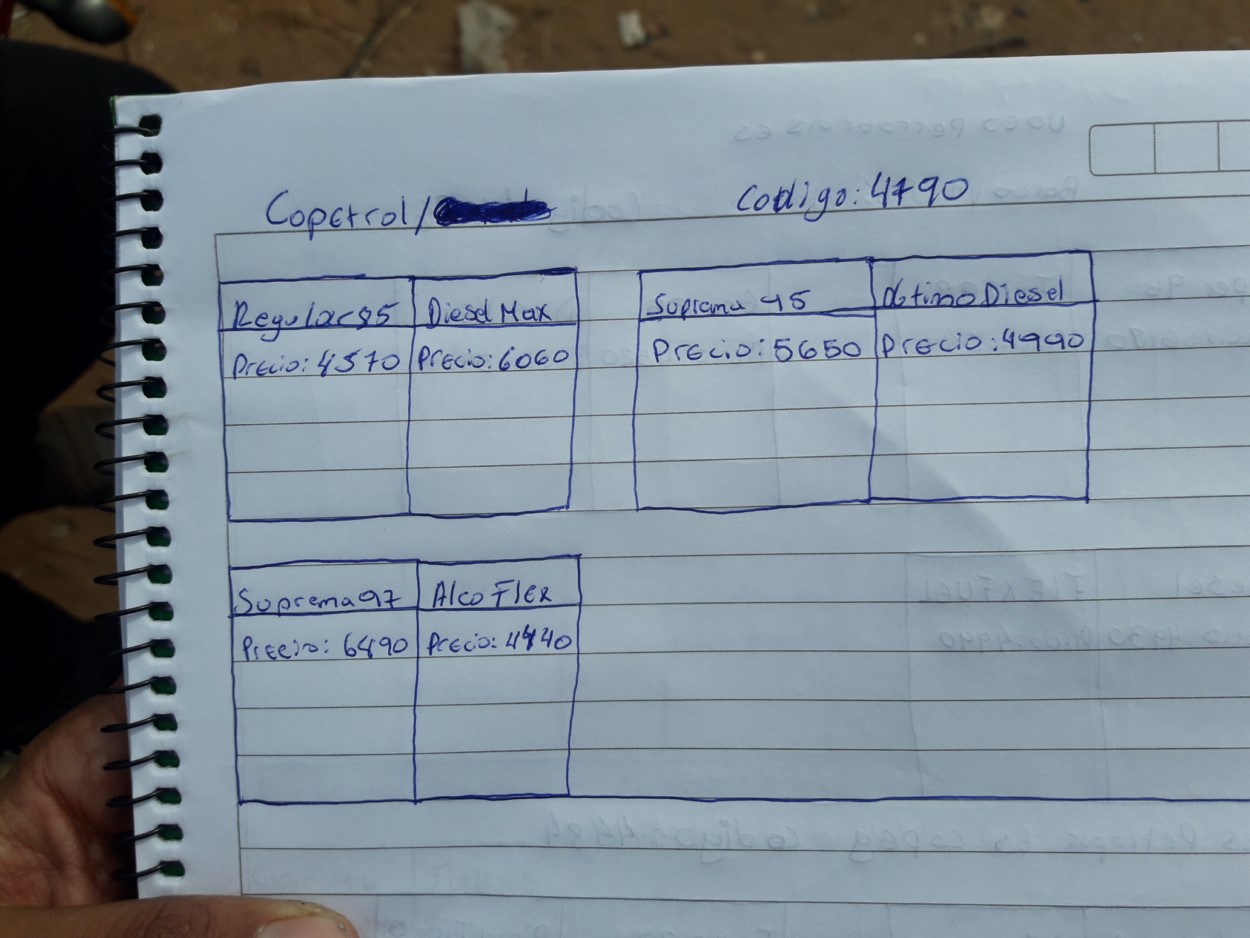 Copetrol/
Codigo: 4790
Regular85 Diesel Max
Precio: 4570 Precio: 6060
Suprema 95 Óptimo Diesel
Precio: 5650 Precio: 4990
Suprema97 Alco Flex
Precio: 6490 Precio: 4440